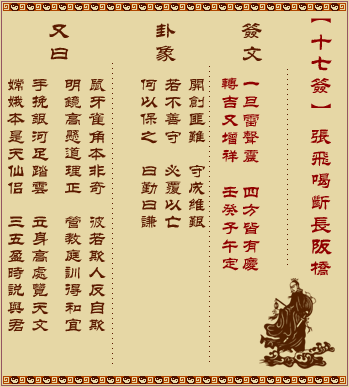 【十七簽】 張飛喝斷長阪橋
簽文
一旦雷聲震 四方皆有慶
轉吉又增祥 壬癸子午定
卦象
開創匪難 守成維艱
若不善守 必覆以亡
何以保之 曰勤曰謙
又曰
鼠牙雀角本非奇 彼若欺人反自欺
明鏡高懸道理正 管教庭訓得和宜
手挽銀河足踏雲 立身高處覽天文
嫦娥本是天仙侶 三五盈時說與君